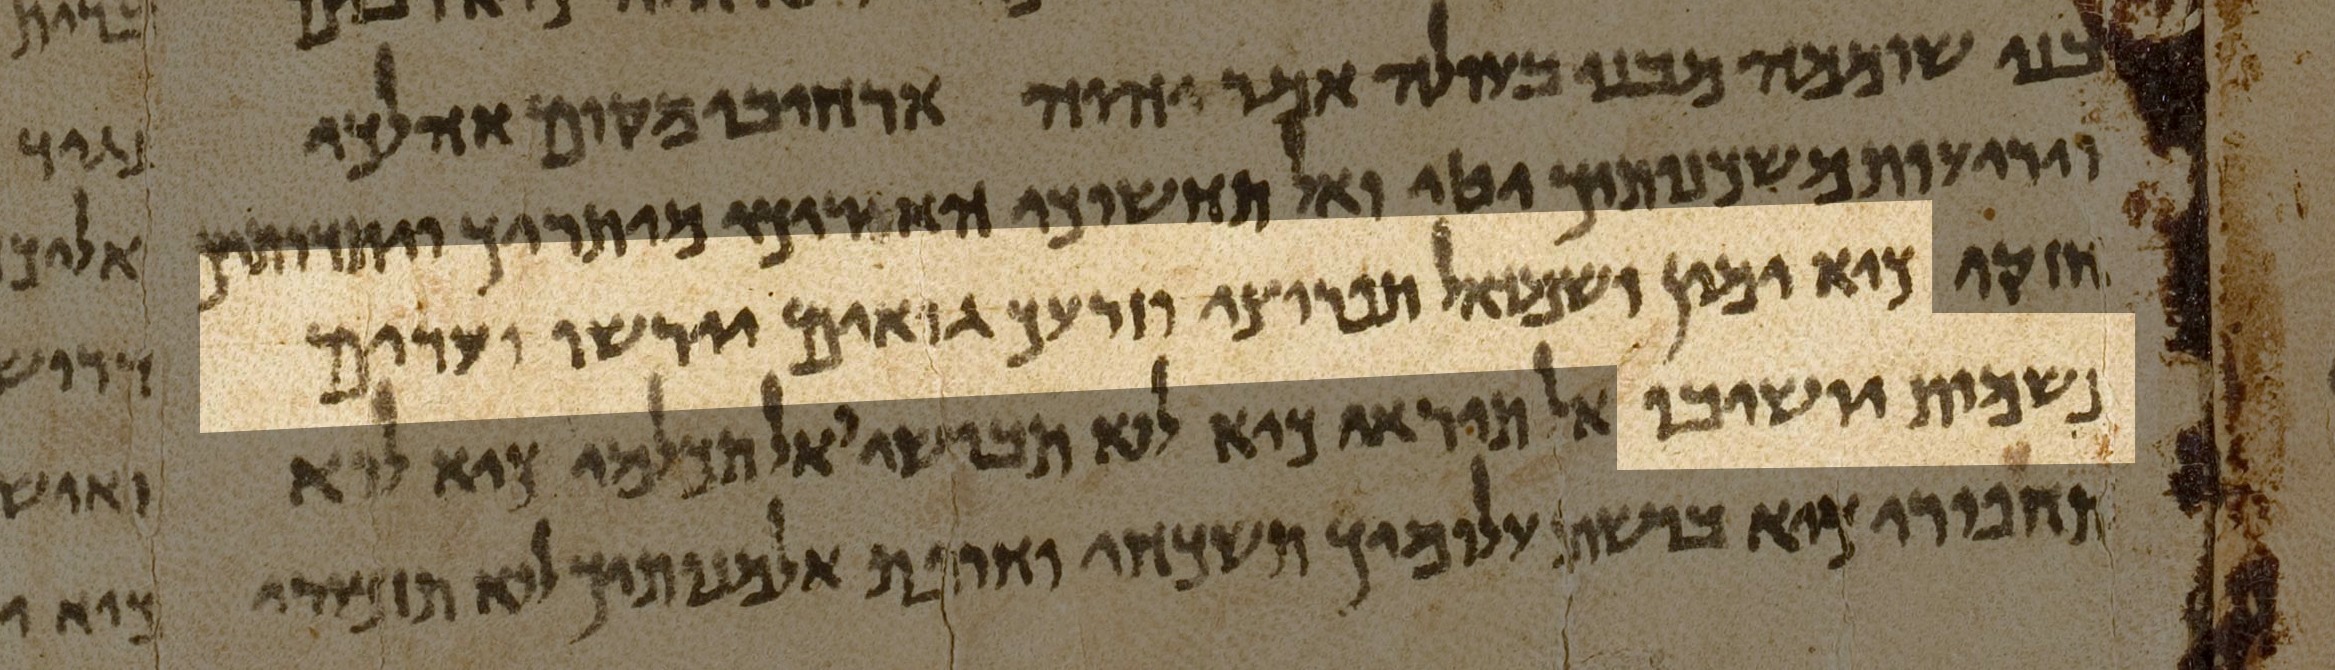 בני שוממה מבני בעולה אמר יהוה ארחיבי מקום אהלכי
ויריעות משכנותיך יטי ואל תחשוכי האריכי מיתריך ויתדותיך
חזקי כיא ימין ושמאל תפרוצי וזרעך גואים יירשו וערים
נשמות יישובו אל תיראי כיא לוא תבושי ואל תכלמי כיא לוא
תחפירי כיא בושת עלומיך תשכחי וחרפת אלמנותיך לוא תזכורי